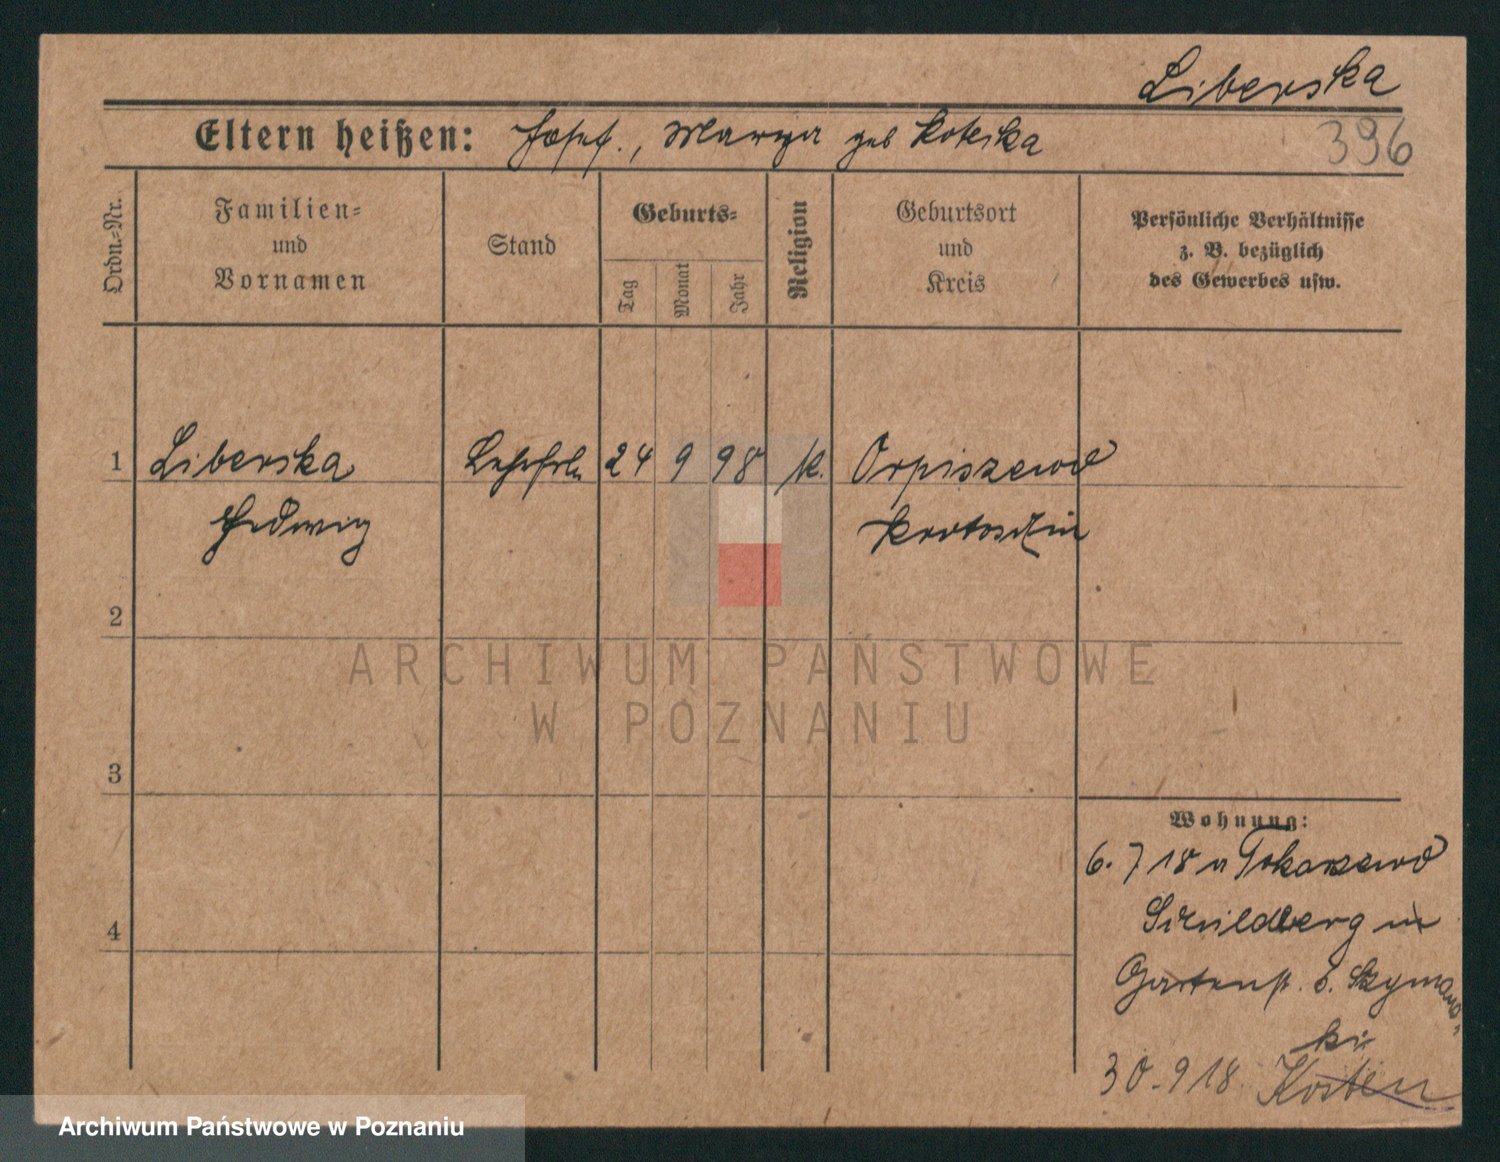 Liberska
396
Eltern heißen: Josef., Marya geb Koteska
Ordn.=Nr.
Familien=
und
Vornamen
Stand
Geburts=
Tag
Monat
Jahr
Religion
Geburtsort
und
Kreis
Persönliche Verhältnisse
z. B. bezüglich
des Gewerbes usw.
1 Liberska Lehrfrln 24 9 98 k. Orpiszewo
Hedwig Krotoschin
2
ARCHIWUM PAŃSTWOWE
W POZNANIU
3
Wohnung:
6. 7 18 n Tokarzewo
Schildberg in
4
Gartenst. b. Szymans-
ki
30. 9 18. Kosten
Archiwum Państwowe w Poznaniu